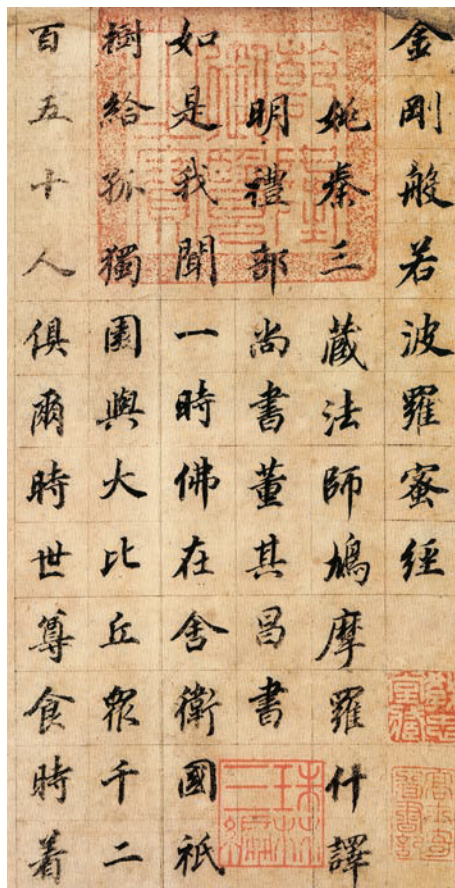 金剛般若波羅蜜經
姚秦三藏法師鳩摩羅什譯
明禮部尚書董其昌書
如是我聞一時佛在舍衛國祇
樹給孤獨園與大比丘眾千二
百五十人俱爾時世尊食時着
珠林
三編